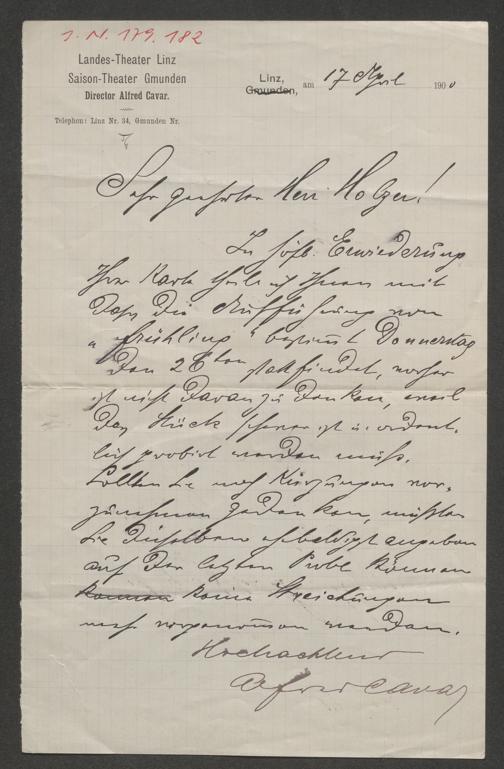 J. N. 179.182
Landes-Theater Linz
Saison-Theater Gmunden
Director Alfred Cavar.
Telephon: Linz Nr. 34, Gmunden Nr.
Linz,
Gmunden, am 17 April 1900
Sehr geehrter Herr Holzer!
In höfl. Erwiederung
Ihrer Karte theile ich Ihnen mit
daß die Aufführung von
"Frühling" bestimmt Donnerstag
den 26ten stattfindet, vorher
ist nicht daran zu denken, weil
das Stück schwer ist u. ordent-
lich probirt werden muß.
Sollten Sie noch Kürzungen vor-
zunehmen gedenken, müßten
Sie dieselben ehebaldigst angeben
auf der letzten Probe können
können keine Streichungen
mehr vorgenommen werden.
Hochachtend
Alfred Cavar